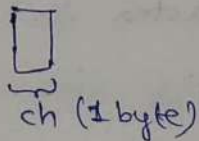 ch (1 byte)